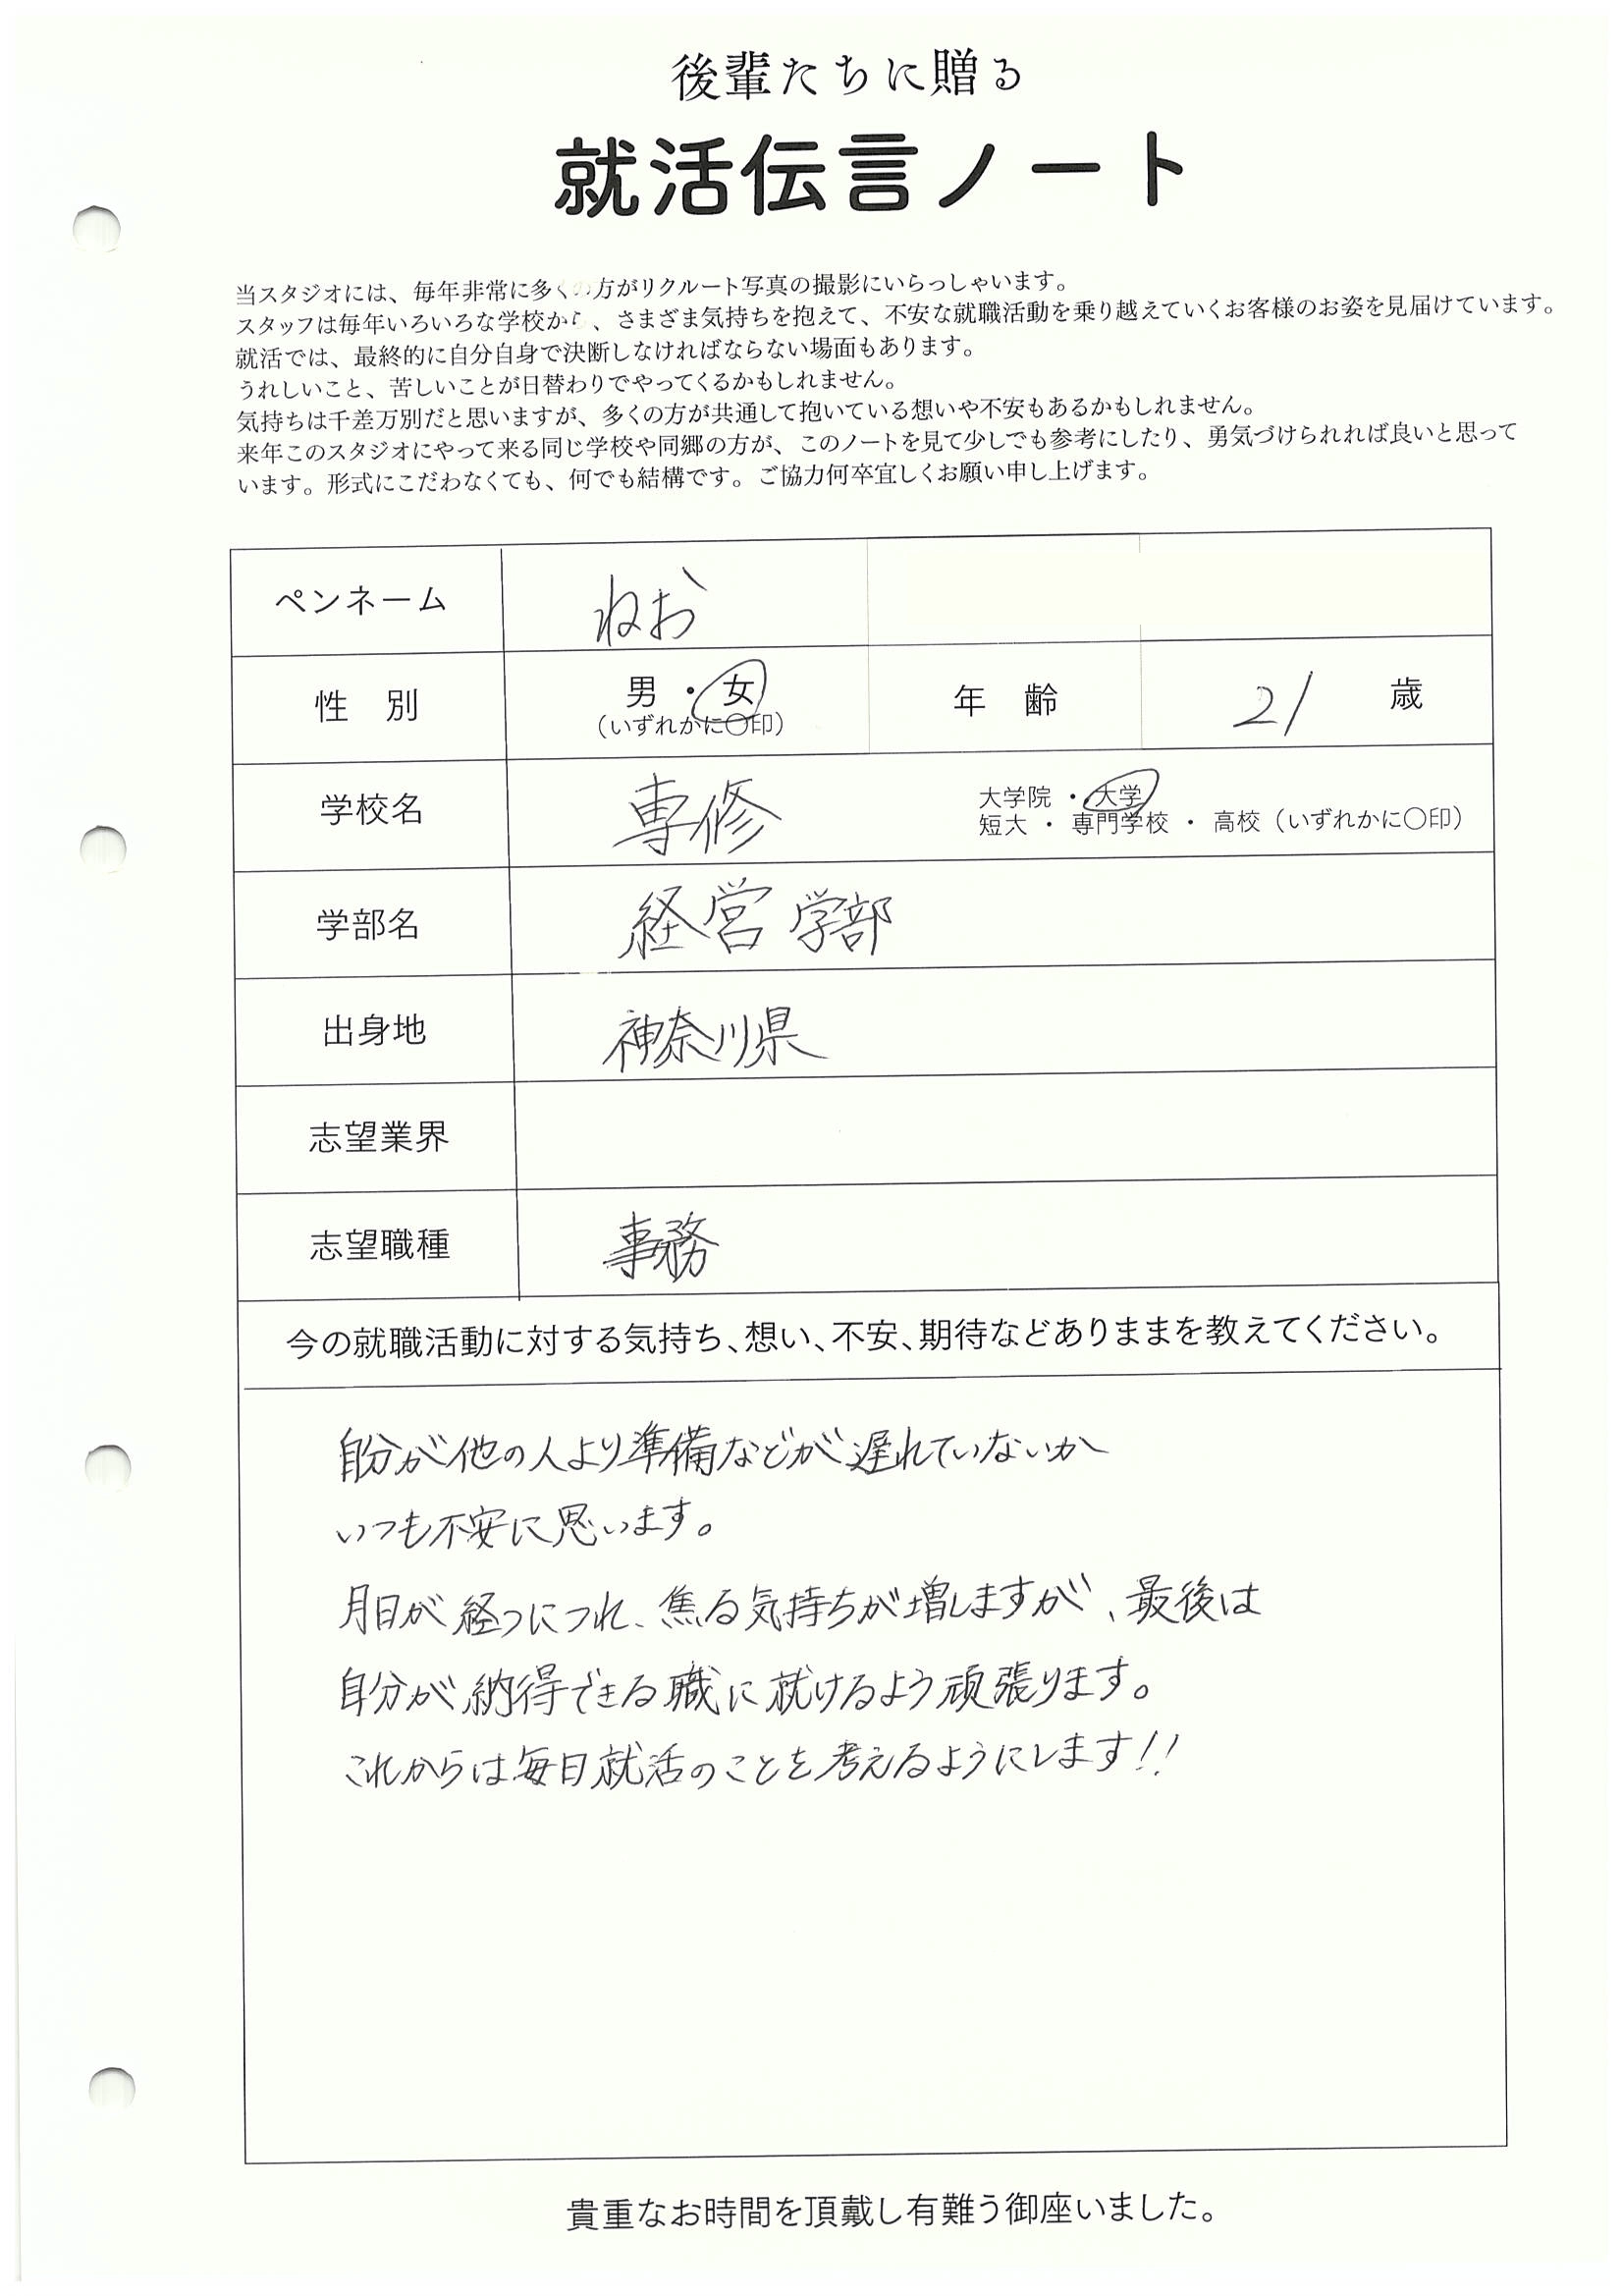 後輩たちに贈る
就活伝言ノート
当スタジオには、毎年非常に多くの方がリクルート写真の撮影にいらっしゃいます。
スタッフは毎年いろいろな学校から、さまざま気持ちを抱えて、不安な就職活動を乗り越えていくお客様のお姿を見届けています。
就活では、最終的に自分自身で決断しなければならない場面もあります。
うれしいこと、苦しいことが日替わりでやってくるかもしれません。
気持ちは千差万別だと思いますが、多くの方が共通して抱いている想いや不安もあるかもしれません。
来年このスタジオにやって来る同じ学校や同郷の方が、このノートを見て少しでも参考にしたり、勇気づけられれば良いと思って
います。形式にこだわなくても、何でも結構です。ご協力何卒宜しくお願い申し上げます。
ペンネーム ねお
性 別 男・女 年 齢 21 歳
(いずれかに〇印)
学校名 専修 大学院・大学
短大・専門学校・高校(いずれかに〇印)
学部名 経営学部
出身地 神奈川県
志望業界
志望職種 事務
今の就職活動に対する気持ち、想い、不安、期待などありままを教えてください。
自分が他の人より準備などが遅れていないか
いつも不安に思います。
月日が経つにつれ、焦る気持ちが増しますが、最後は
自分が納得できる職に就けるよう頑張ります。
これからは毎日就活のことを考えるようにします!!
貴重なお時間を頂戴し有難う御座いました。